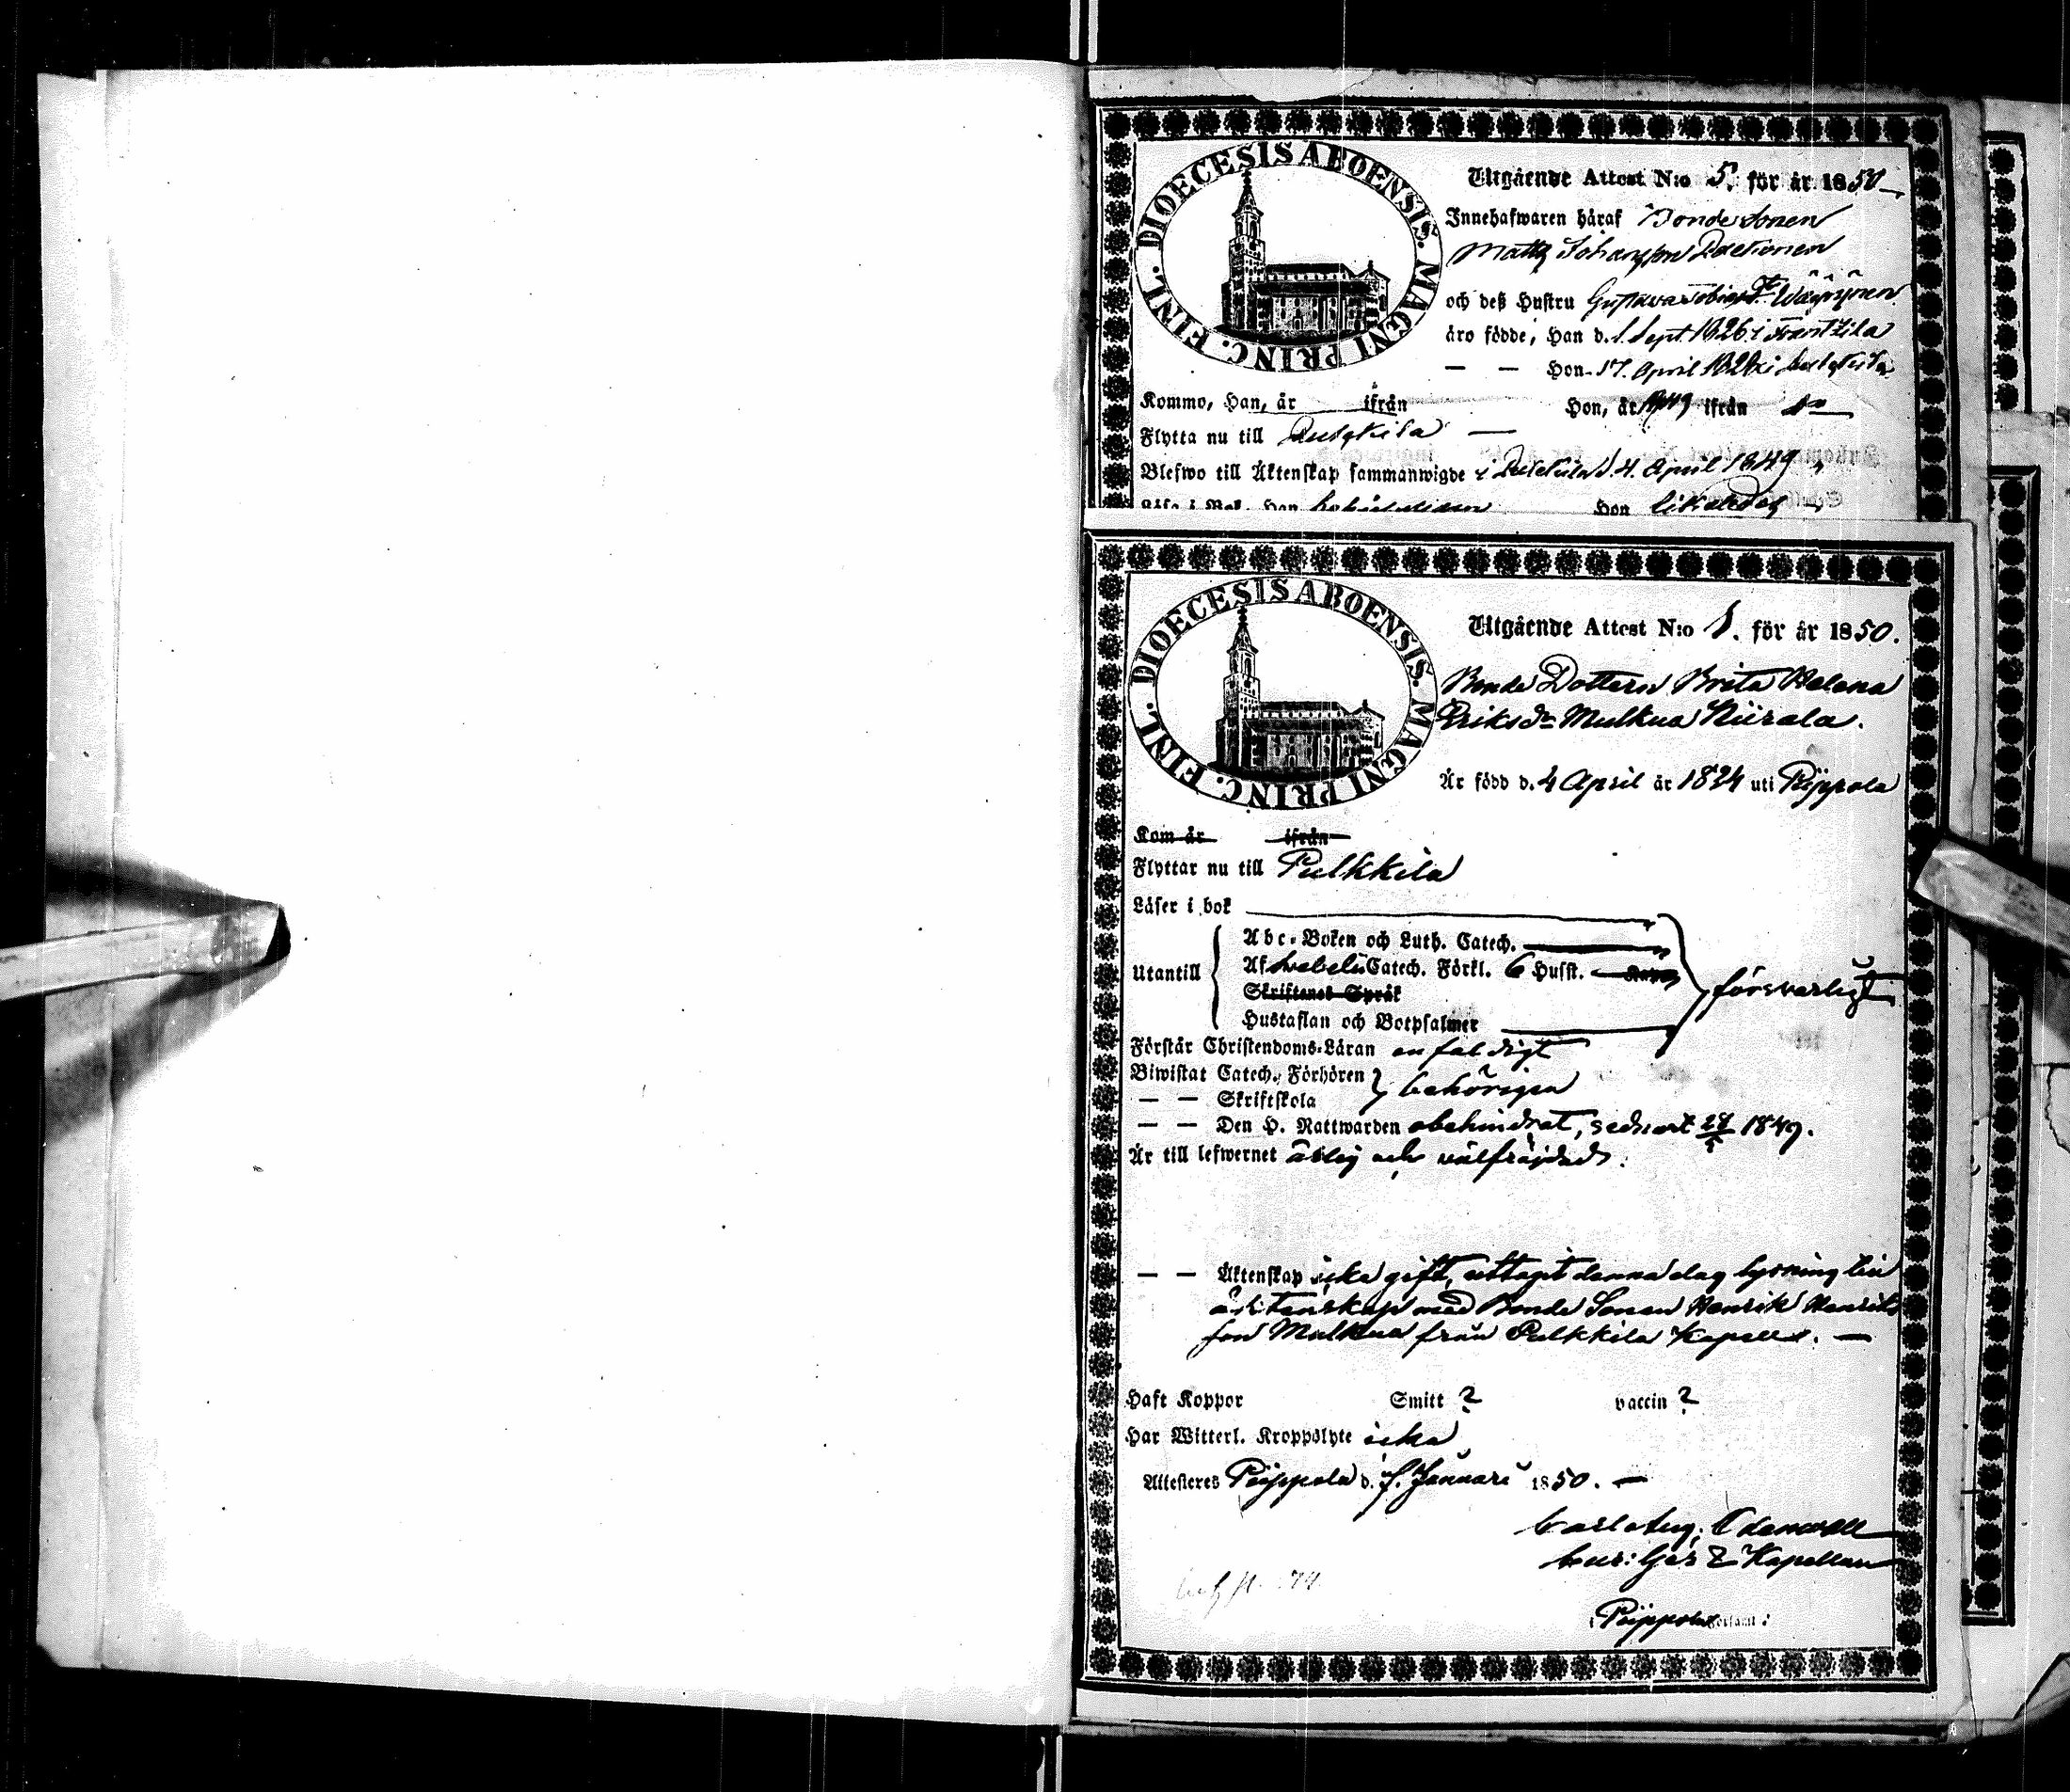 DIOECESIS ABOENSIS. MAGNI PRINC. FINL.
Utgående Attest N:o 5. för år 1850
Innehafwaren häraf Bonde Sonen
Matts Johansson
och deß Hustru Gustava
äro födde, Han d. 1. Sept. 1826 i Frantzila
— — Hon 17. April
Kommo, Han, år ifrån Hon, år 1849 ifrån
Flytta nu till Pulkkila —
Blefwo till Äktenskap sammanwigde i Pulkkila d. 4. April 1849
Läsa i Bok, Han Hon likaledes
DIOECESIS ABOENSIS. MAGNI PRINC. FINL.
Utgående Attest N:o 1. för år 1850.
Bonde Dottern Brita Helena
Eriksdr Mulkua Niirala.
Är född d. 4 April år 1824 uti Pippola
Kom år ifrån
Flyttar nu till Pulkkila
Läser i bok
Abc-Boken och Luth. Catech.
Utantill Af Svebelii Catech. Förkl. 6 Hufst.
Skriftenes Språk försvarligt
Hustaflan och Botpsalmer
Förstår Christendoms-Läran enfaldigt
Biwistat Catech. Förhören behörigen
— — Skriftskola
— — Den H. Nattwarden obehindrat, sednast 1849.
Är till lefwernet ärlig och välfräjdad.
— — Äktenskap icke gift, uttagit denna dag lysning till
äktenskap med Bonde Sonen Henrik Henriks
son Mulkua från Pulkkila Kapell. —
Haft Koppor Smitt ? vaccin ?
Har Witterl. Kroppslyte icke
Attesteres Pippola d. 1. Januari 1850. —
Carl Aug. Odenwall
Kapellan
i Pippola Församl: